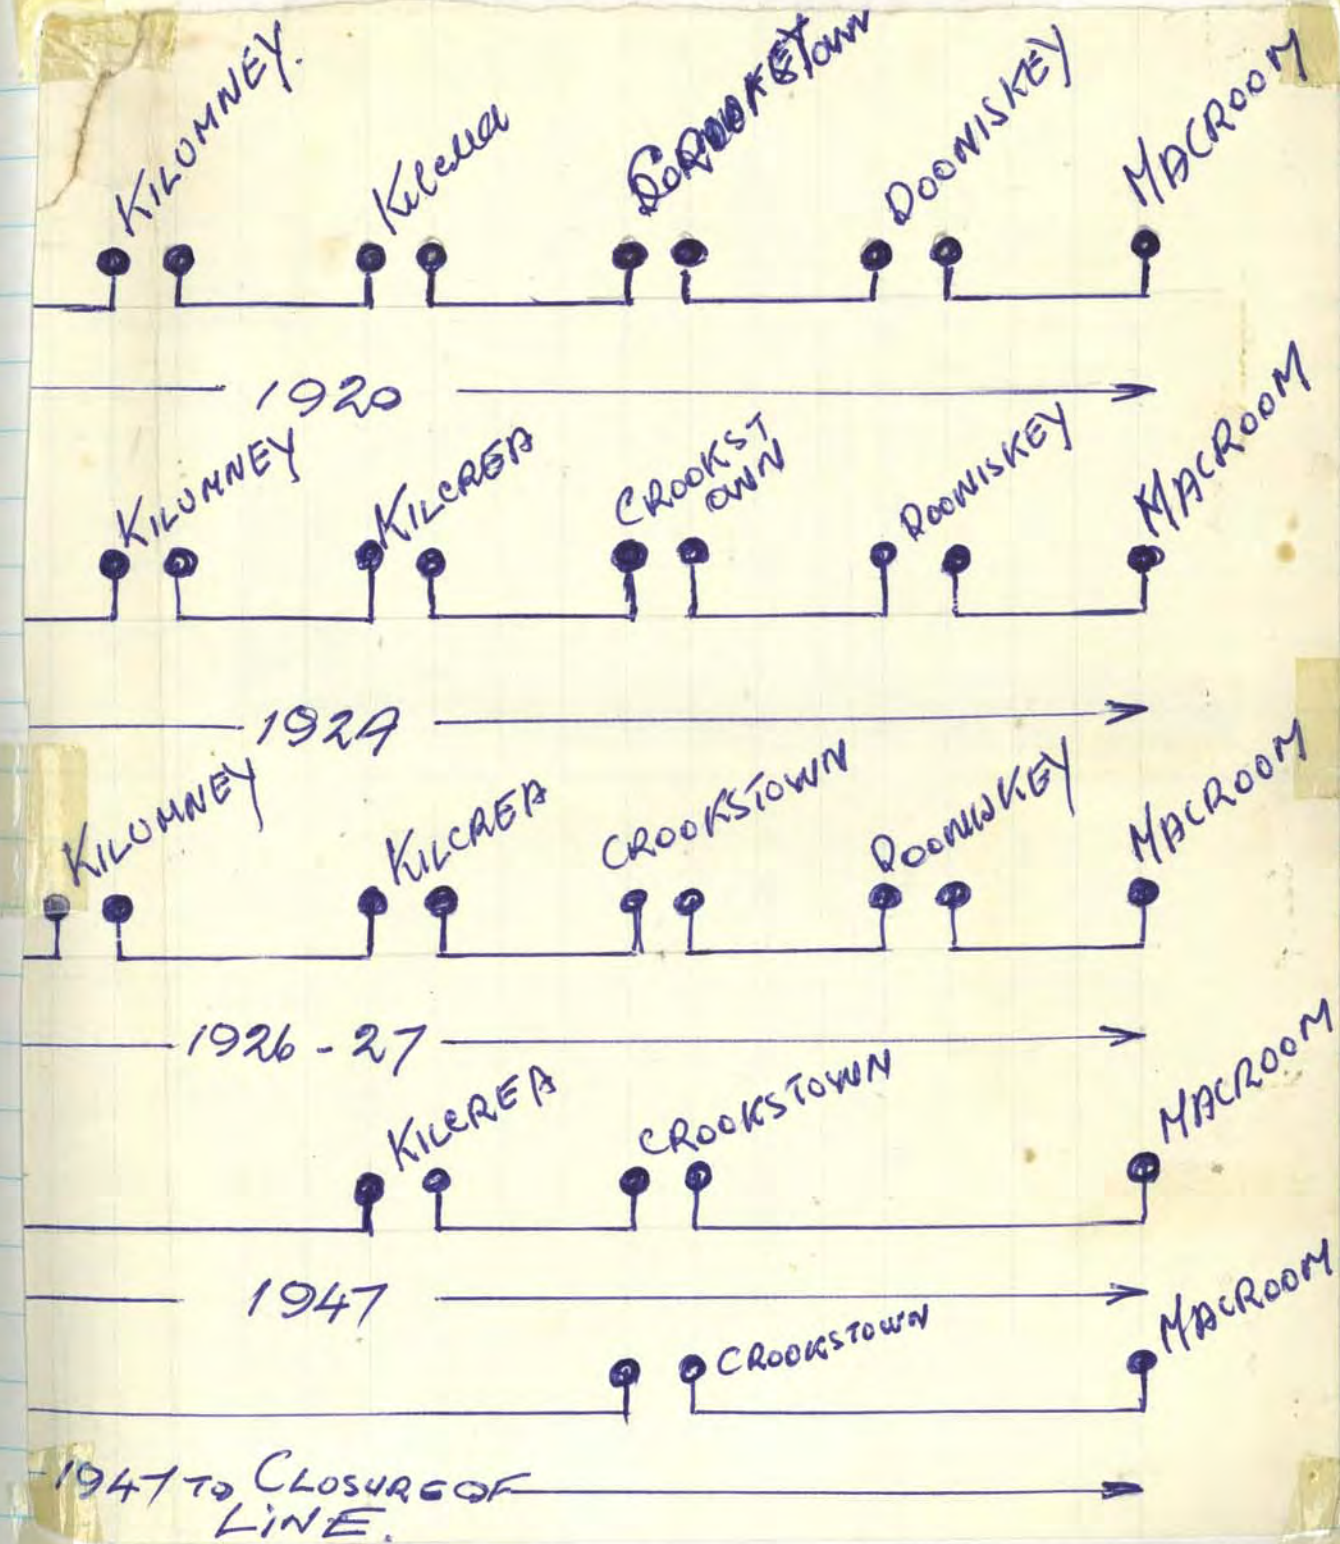 KILUMNEY.
Kilcrea
DOONISKEY
MACROOM
1920
KILUMNEY
KILCREA
CROOKST
OWN
DOONISKEY
MACROOM
1924
KILUMNEY
KILCREA
CROOKSTOWN
MACROOM
1926-27
KILCREA
CROOKSTOWN
MACROOM
1947
CROOKSTOWN
MACROOM
1947 TO CLOSURE OF
LINE.